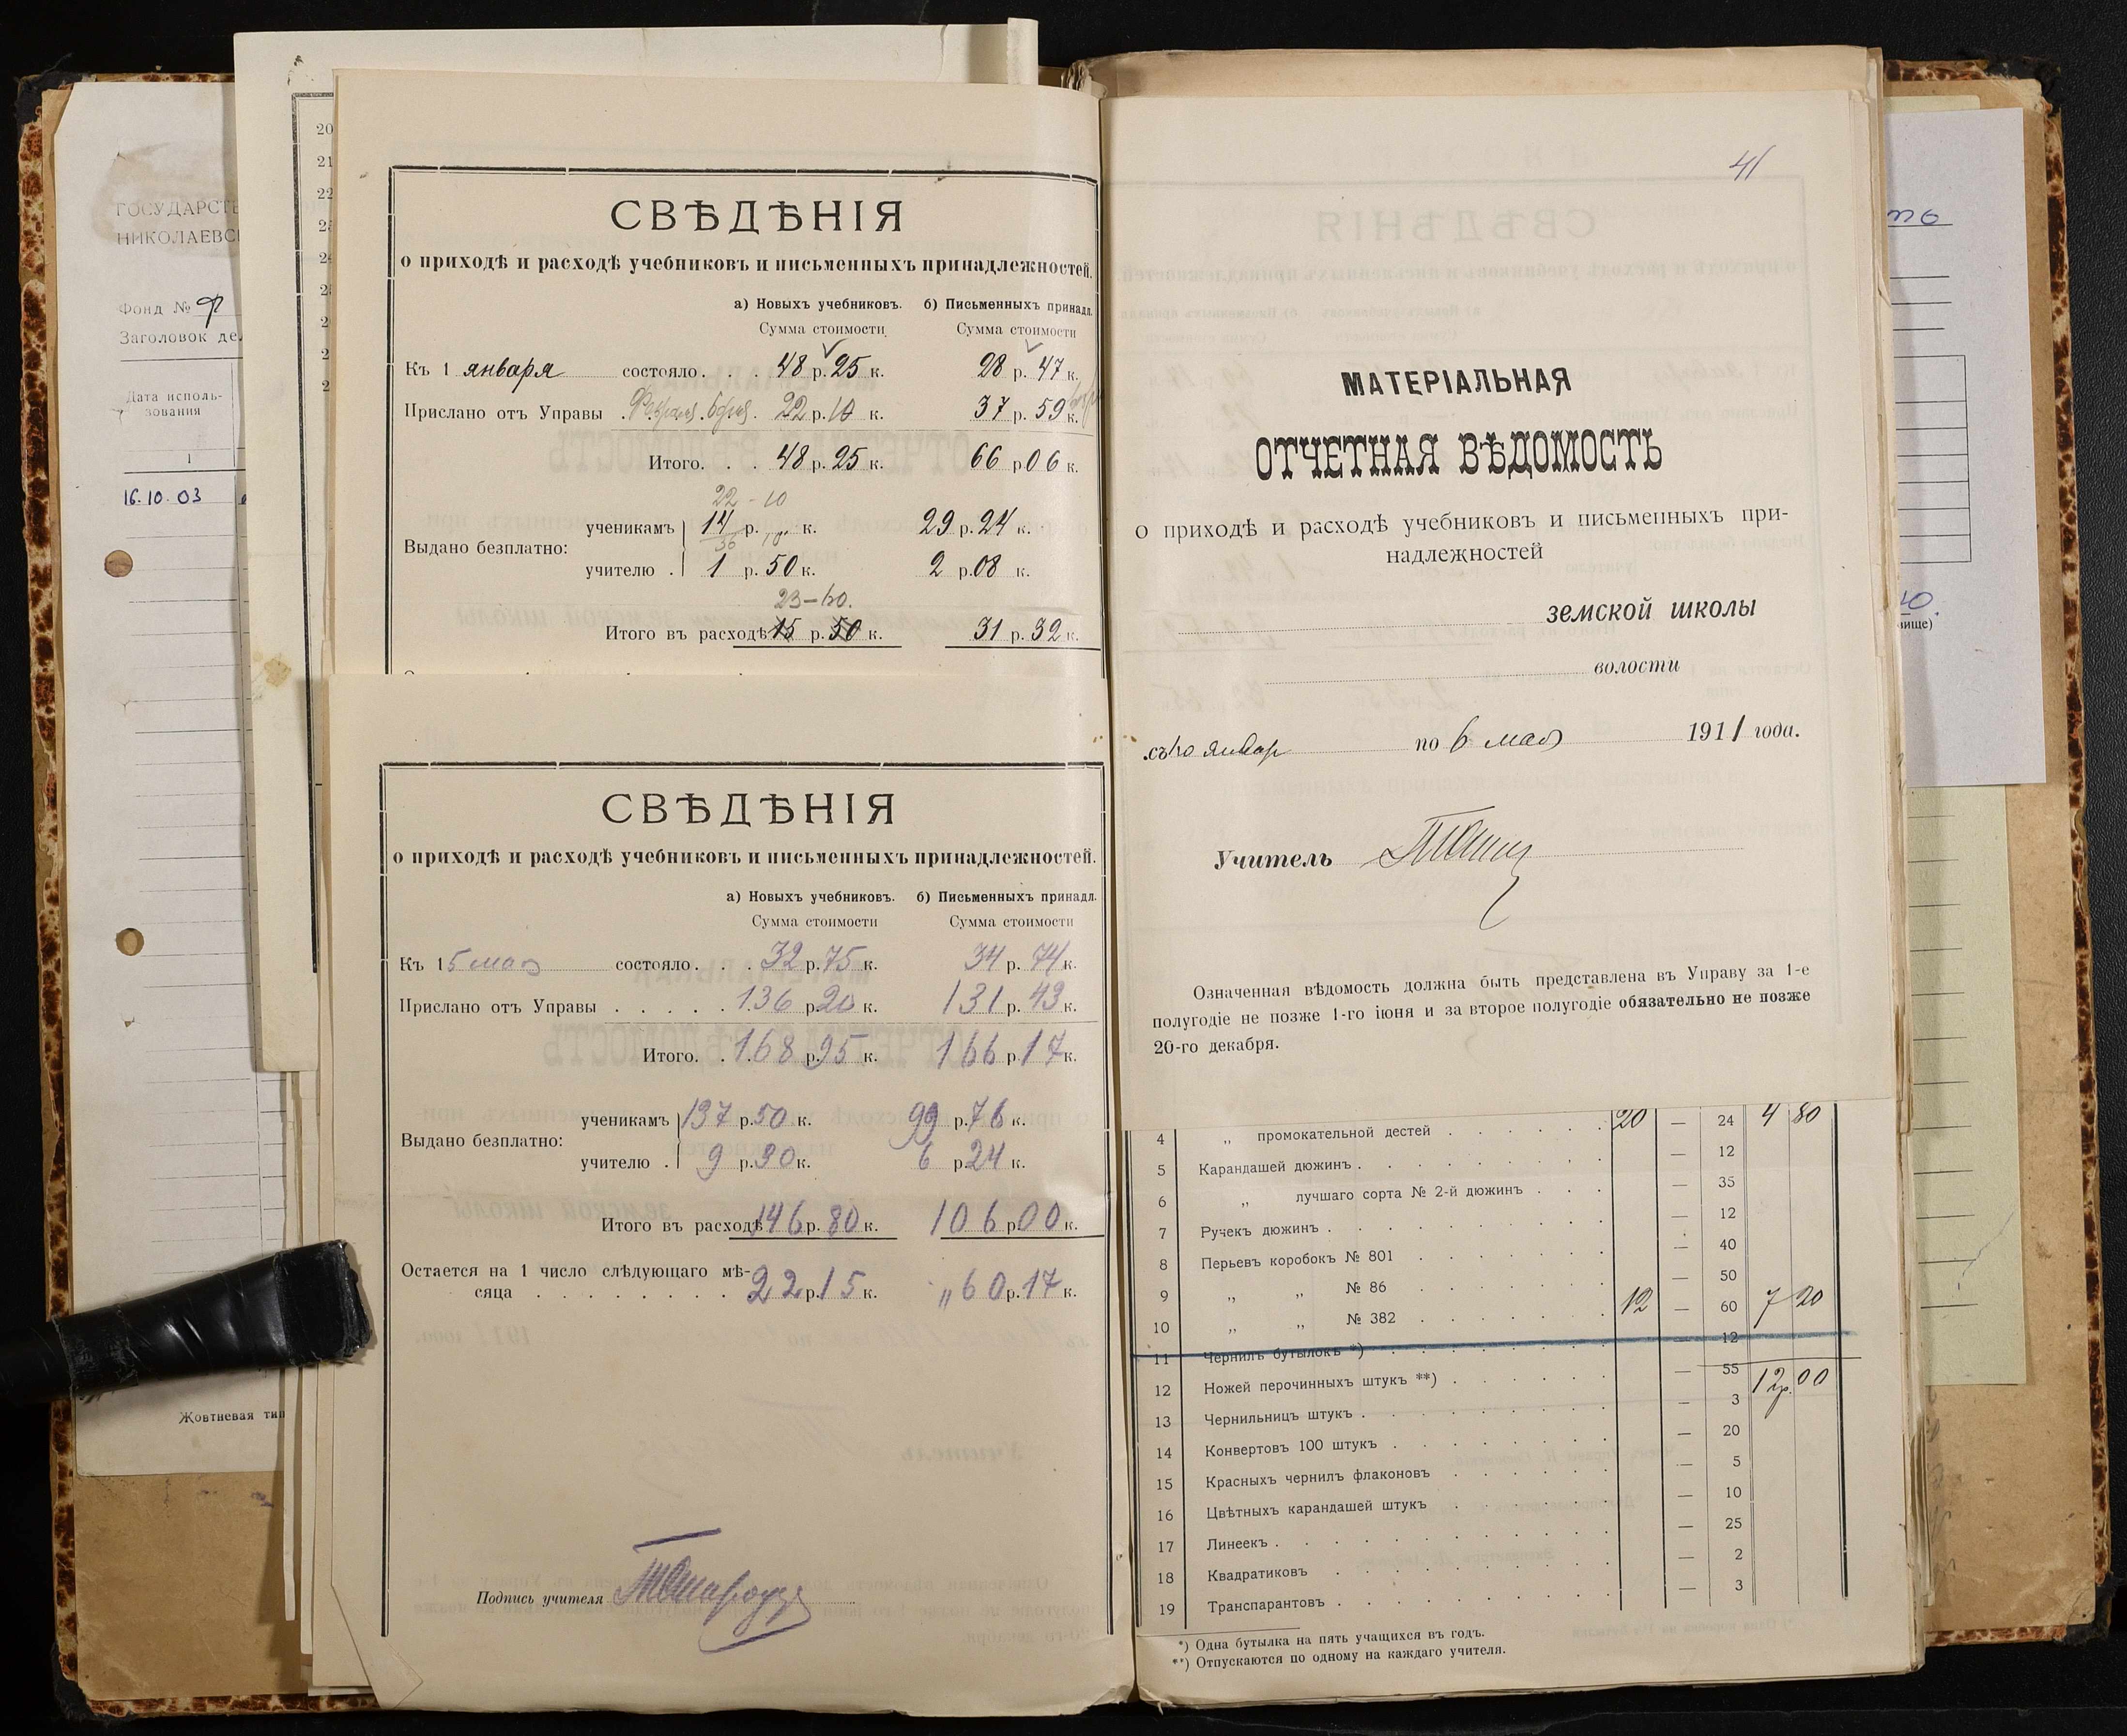 ГОСУДАРСТВ
НИКОЛАЕВС
Фонд №
Заголовок де
Дата исполь-
зования
1
16.10.03
Жовтневая тип
20
21
22
СВѢДѢНІЯ
о приходѣ и расходѣ учебниковъ и письменныхъ принадлежностей.
а) Новыхъ учебниковъ. б) Письменныхъ принадл.
Сумма стоимости Сумма стоимости
Къ 1 января состояло. . . 48 р. 25 к. 28 р. 47 к.
Прислано отъ Управы 22 р. 10 к. 37 р. 59 к.
Итого. . . 48 р. 25 к. 66 р 06 к.
22 - 10
ученикамъ 14 р. „ к. 29 р. 24 к.
Выдано безплатно:
учителю . 1 р. 50 к. 2 р. 08 к.
23-60.
Итого въ расходѣ 15 р. 50 к. 31 р. 32 к.
СВѢДѢНІЯ
о приходѣ и расходѣ учебниковъ и письменныхъ принадлежностей.
а) Новыхъ учебниковъ. б) Письменныхъ принадл.
Сумма стоимости Сумма стоимости
Къ 1 5 мая состояло. . . 32 р. 75 к. 34 р. 74 к.
Прислано отъ Управы . . . . . 136 р. 20 к. 131 р. 43 к.
Итого. . . 168 р. 95 к. 166 р. 17 к.
ученикамъ 137 р. 50 к. 99 р. 76 к.
Выдано безплатно:
учителю . 9 р. 30 к. 6 р. 24 к.
Итого въ расходѣ 146 р. 80 к. 106 р 00 к.
Остается на 1 число слѣдующаго мѣ-
сяца . . . . . . . . 22 р. 15 к. „ 60 р. 17 к.
Подпись учителя
41
МАТЕРІАЛЬНАЯ
ОТЧЕТНАЯ ВѢДОМОСТЬ
о приходѣ и расходѣ учебниковъ и письменныхъ при-
надлежностей
земской школы
волости
съ 10 январ по 6 мая 1911 года.
Учитель
Означенная вѣдомость должна быть представлена въ Управу за 1-е
полугодіе не позже 1-го іюня и за второе полугодіе обязательно не позже
20-го декабря.
4 „ промокательной дестей . . . . . . 20 — 24 4 80
5 Карандашей дюжинъ . . . . . . . . — 12
6 „ лучшаго сорта № 2-й дюжинъ . . . — 35
7 Ручекъ дюжинъ . . . . . . . . . — 12
8 Перьевъ коробокъ № 801 . . . . . . — 40
9 „ „ № 86 . . . . . . — 50
10 „ „ № 382 . . . . . . 12 — 60 7 20
11 Чернилъ бутылокъ *) . . . . . . . — 12
12 Ножей перочинныхъ штукъ **) . . . . . — 55 12р. 00
13 Чернильницъ штукъ . . . . . . . . — 3
14 Конвертовъ 100 штукъ . . . . . . . — 20
15 Красныхъ чернилъ флаконовъ . . . . . — 5
16 Цвѣтныхъ карандашей штукъ . . . . . — 10
17 Линеекъ . . . . . . . . . . — 25
18 Квадратиковъ . . . . . . . . — 2
19 Транспарантовъ . . . . . . . . . — 3
*) Одна бутылка на пять учащихся въ годъ.
**) Отпускаются по одному на каждаго учителя.
ище)